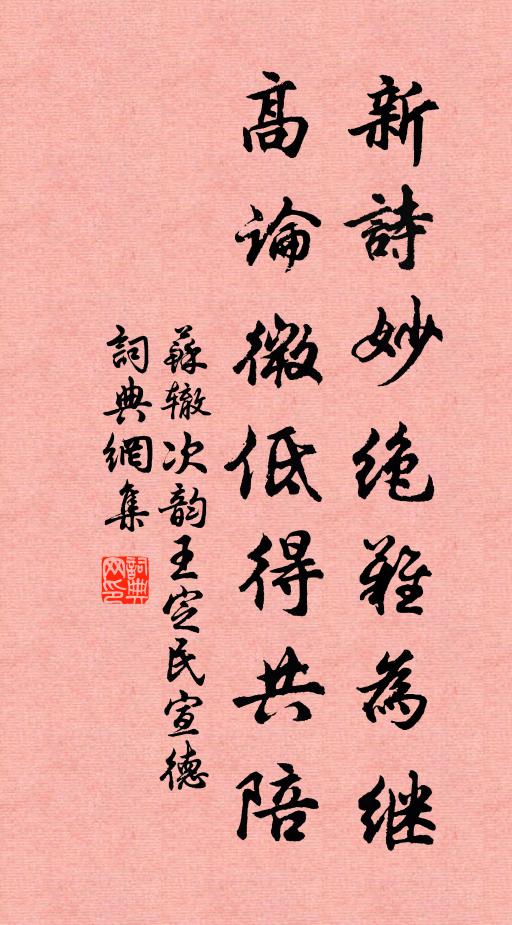 新詩妙絶難為继
高論微低得共陪
蘇辙次韵王定民宣德
詞典網集
詞典网印